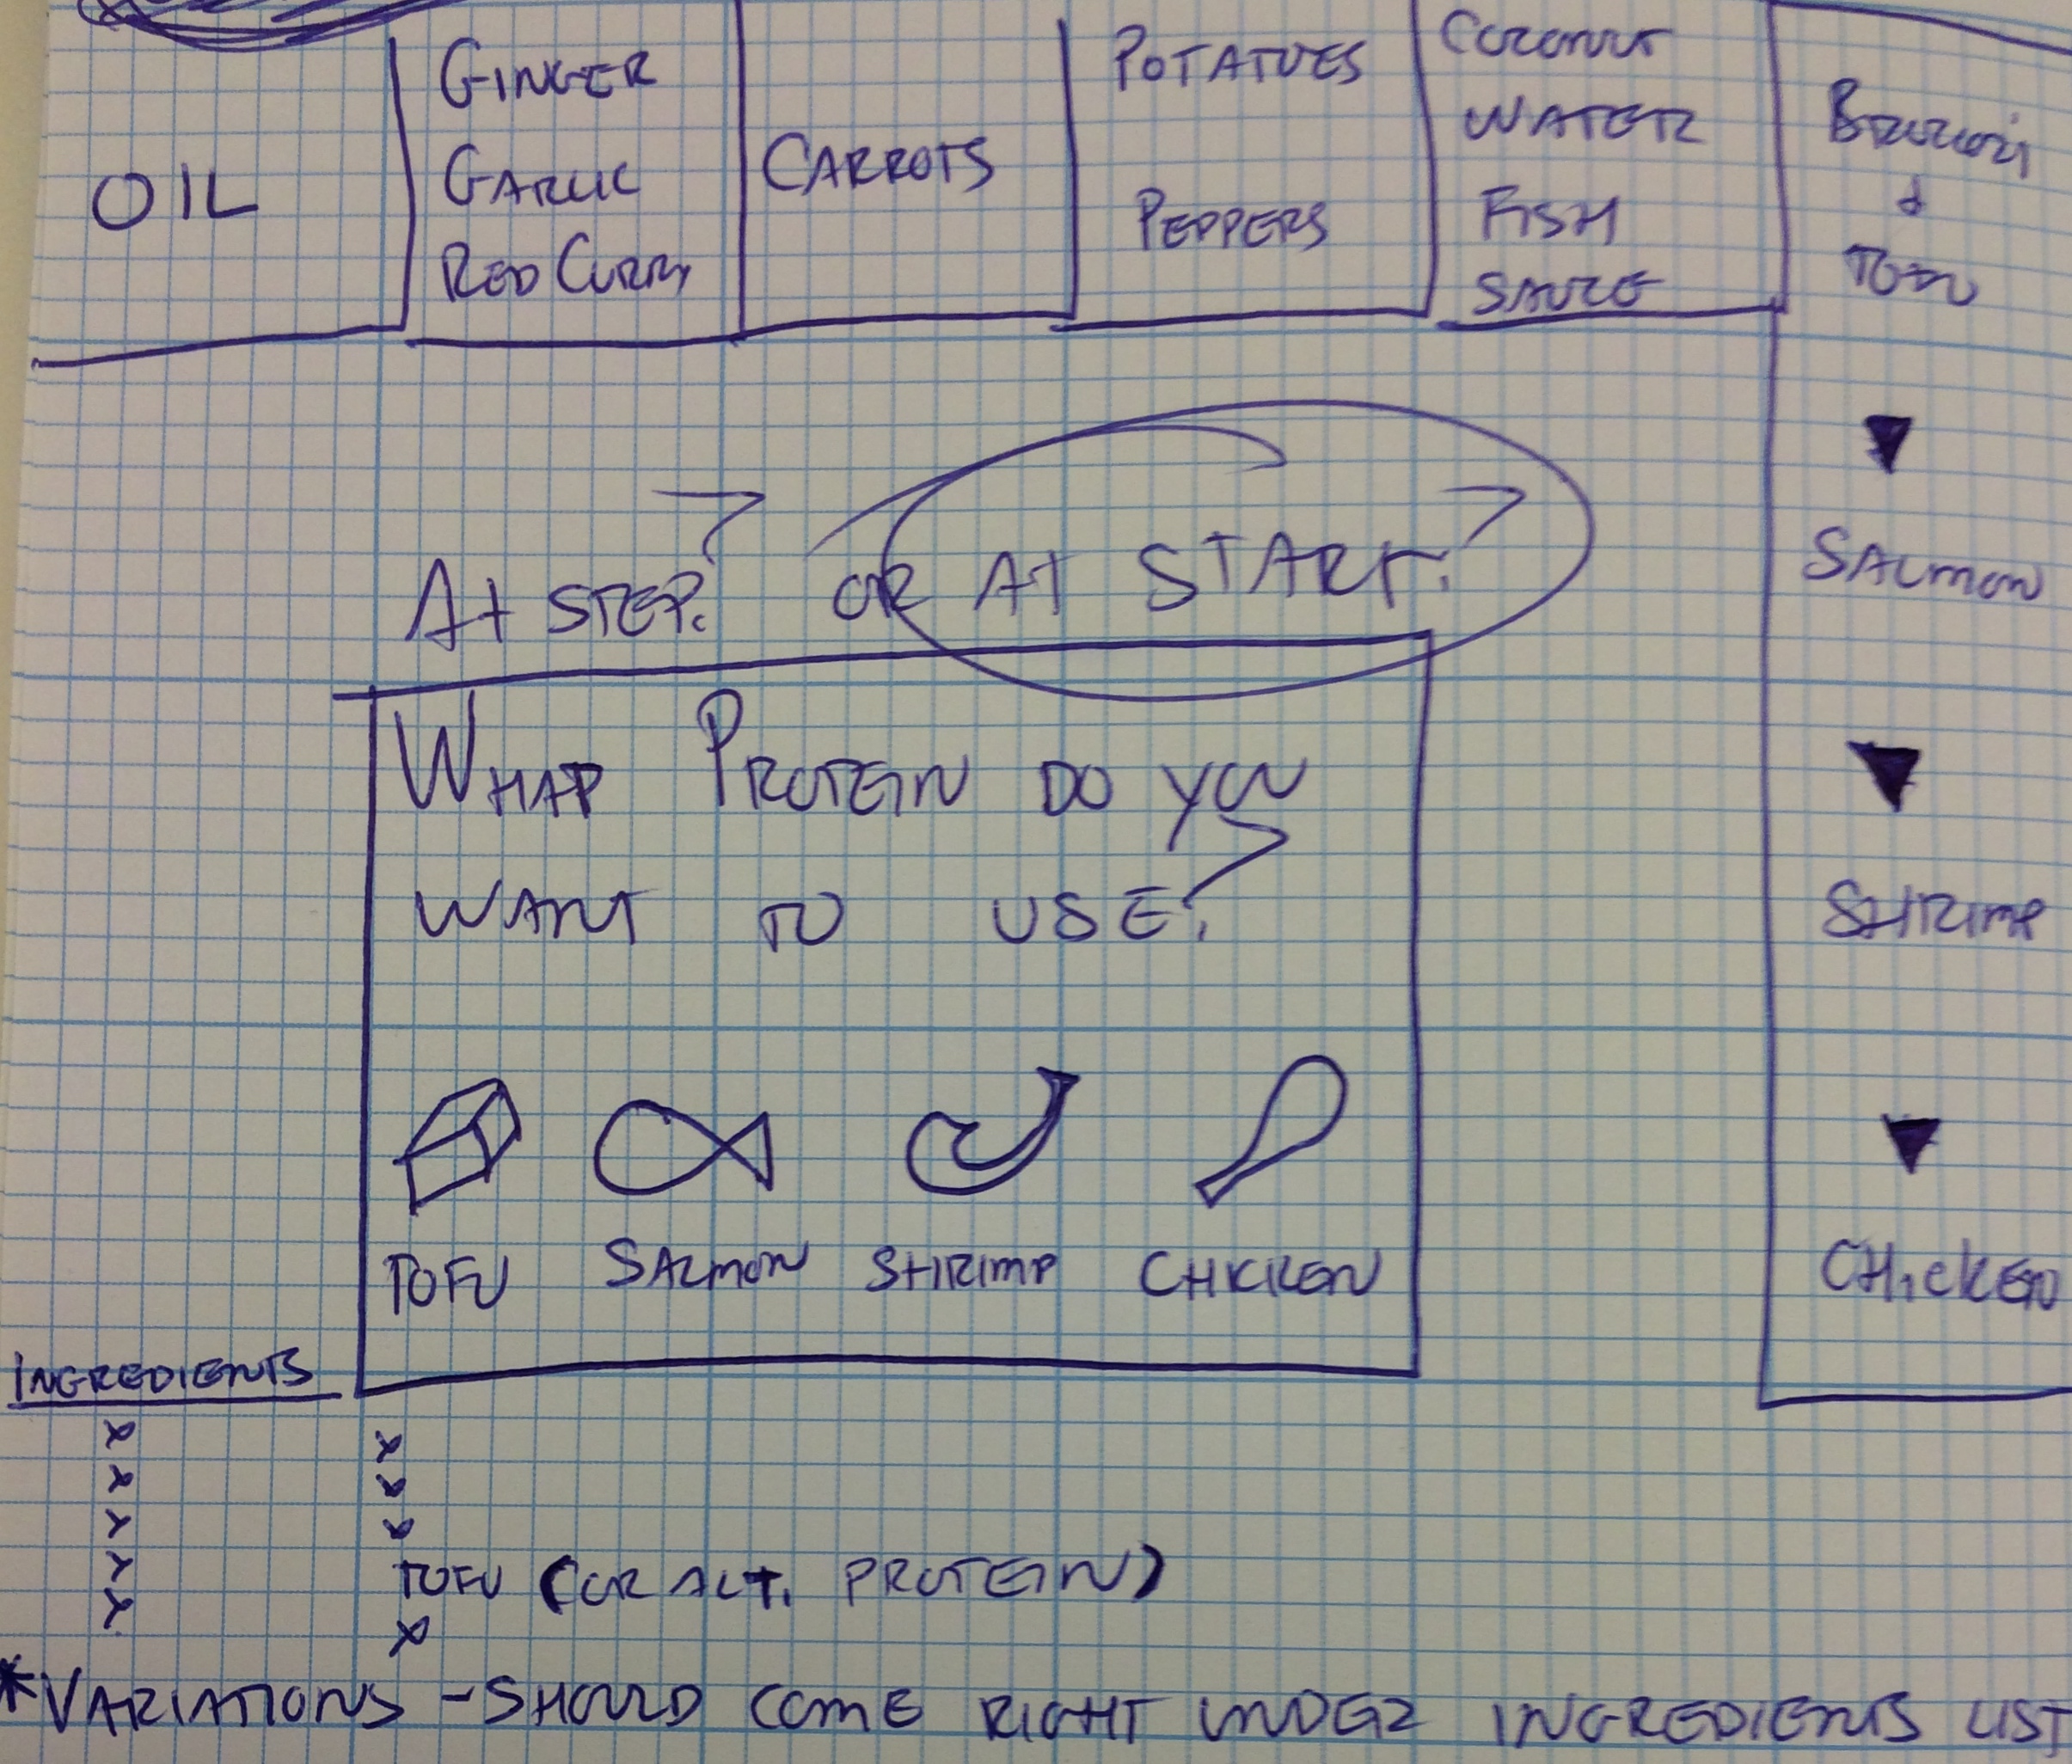 OIL
GINGER
GARLIC
RED CURRY
CARROTS
POTATOES
PEPPERS
COCONUT
WATER
FISH
SAUCE
BROCCOLI
&
TOFU
SALMON
SHRIMP
CHICKEN
At STEP? OR AT START?
WHAT PROTEIN DO YOU
WANT TO USE?
TOFU SALMON SHRIMP CHICKEN
INGREDIENTS
x x
x x
x x
x TOFU (OR ALT. PROTEIN)
x x
*VARIATIONS - SHOULD COME RIGHT UNDER INGREDIENTS LIST